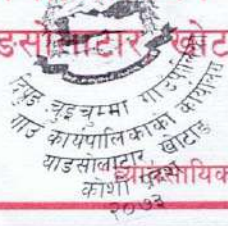 ङसोलाटार, खोट
दिप्रुङ चुइचुम्मा गाउँपालिका
गाउँ कार्यपालिकाको कार्यालय
याङसोलाटार खोटाङ
कोशी प्रदेश
२०७३